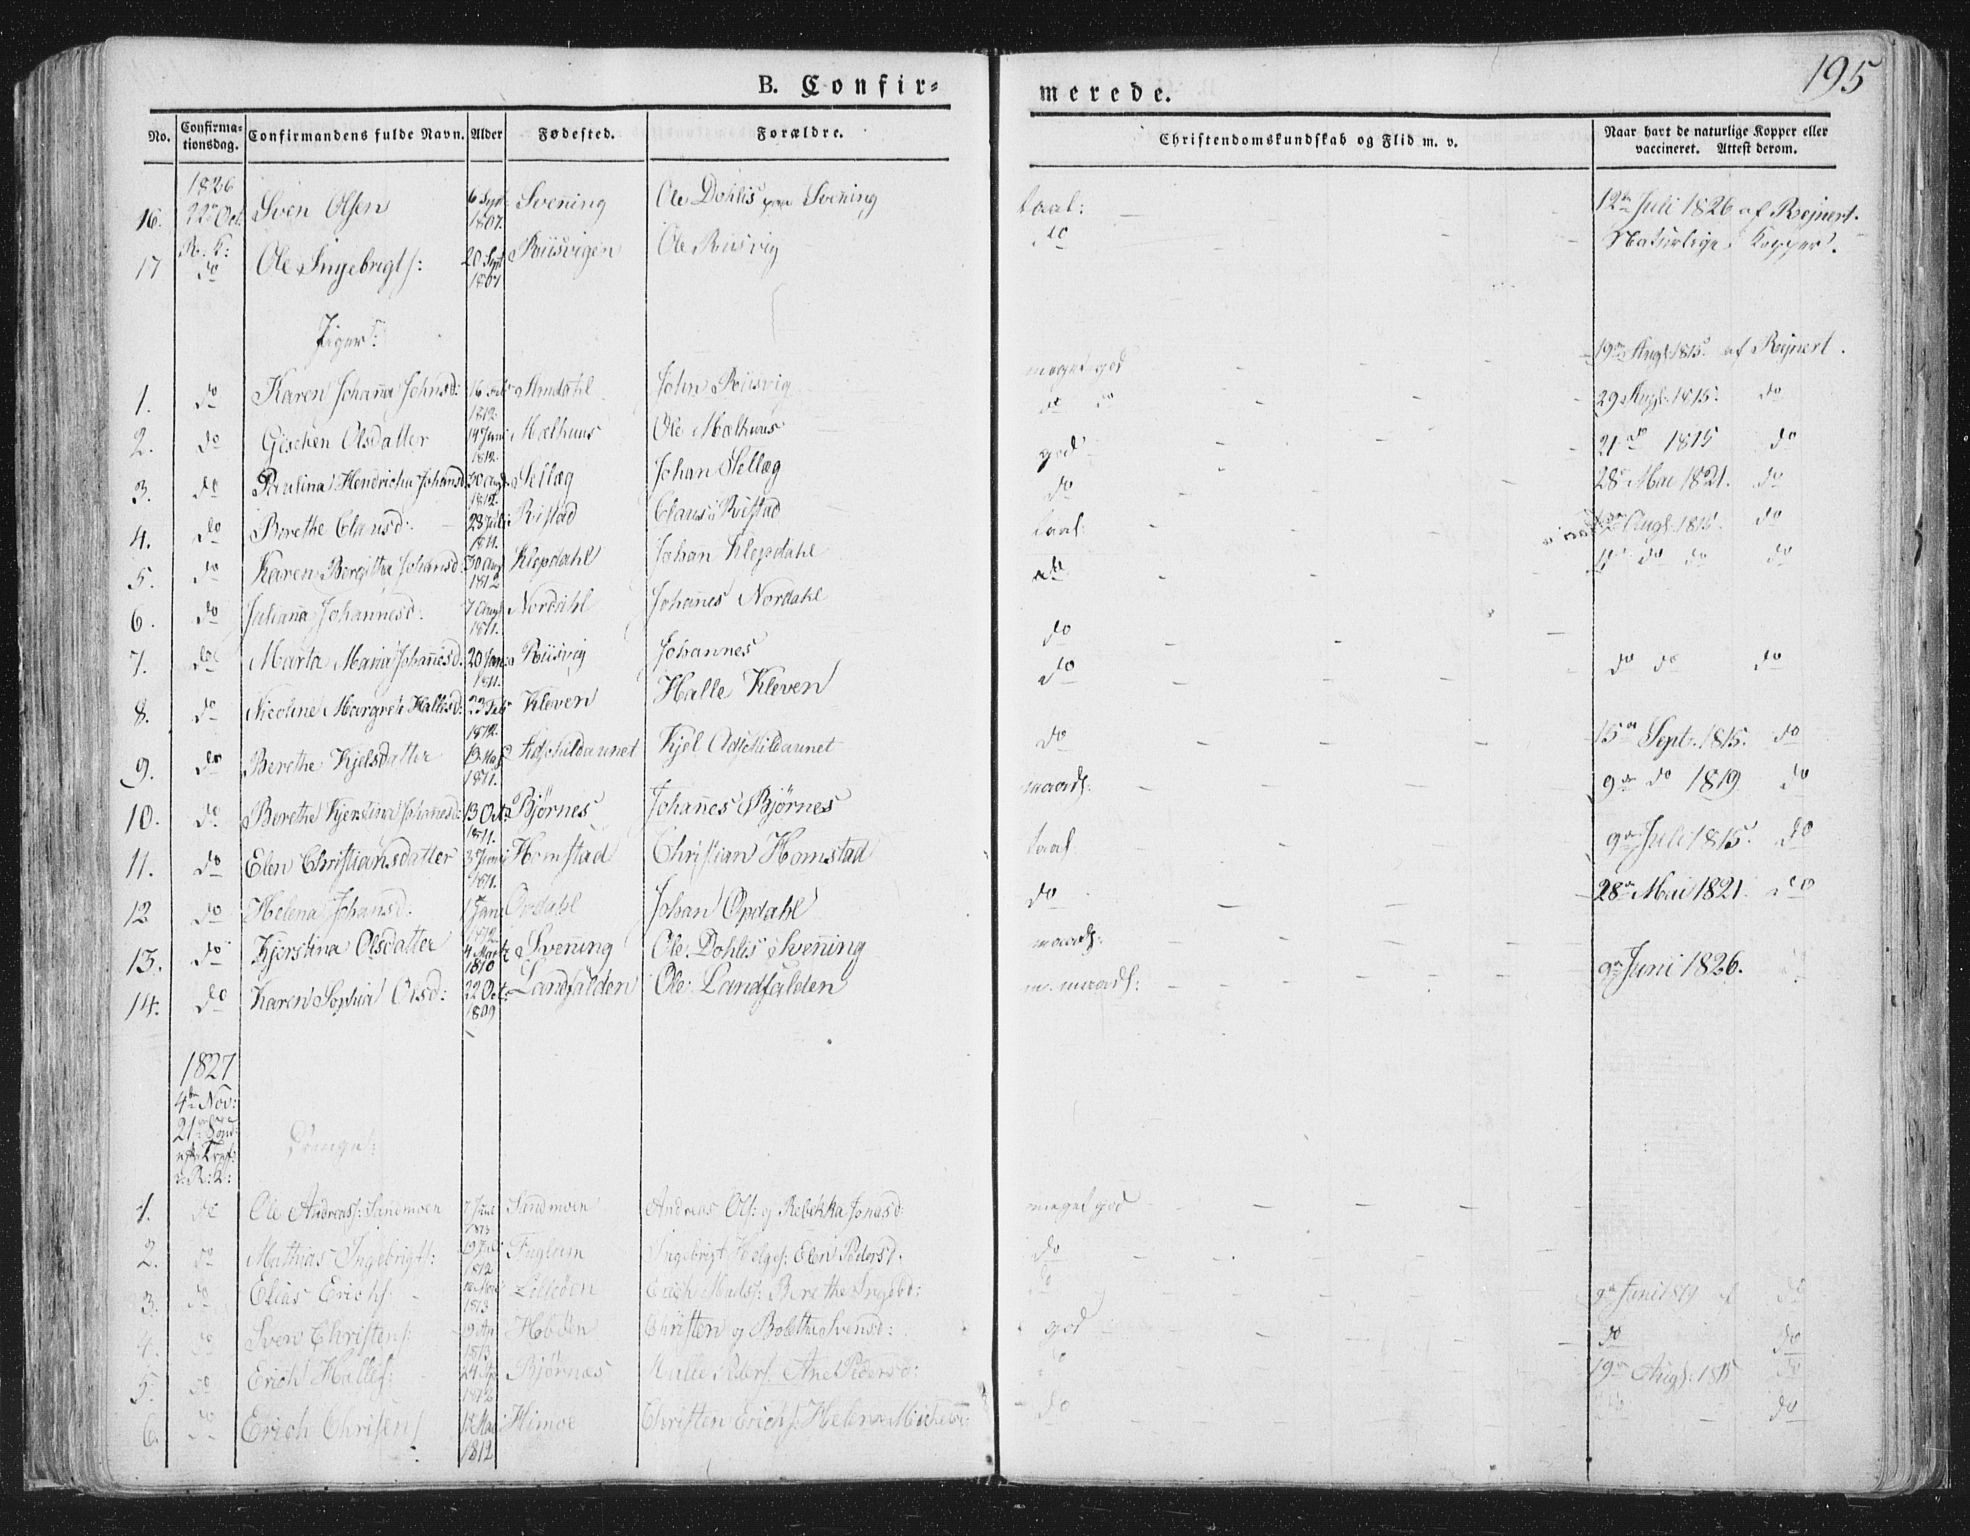 195
B. Confir-
merede.
No. Confirma-tionsdag. Confirmandens fulde Navn. Alder Fødested. Forældre. Christendomskundskab og Flid m. v. Naar havt de naturlige Kopper eller vaccineret. Attest derom.
1826
16. 22de Oct. Sven Olsen 6 Sept 1807. Svening Ole Dohlis paa Svening taal: 12te Juli 1826 af Rejnert.
R. K:
17 do Ole Ingebrigts: 20 Sept 1807 Riisvigen Ole Riisvig do Naturlige Kopper.
Piger:
1. do Karen Johanna Johnsd: 16 Feb 1812 Amdahl John Riisvig meget god 19de Augs: 1815 af Rejnert.
2. do Gjeschen Olsdatter 14 Juni 1812. Mælhuus Ole Mælhuus do do 29 Augs. 1815. do
3. do Paulina Hendricha Johansd. 30 Aug. 1812. Sellæg Johan Sellæg god 21 do 1815 do
4. do Berethe Clausd: 23 Juli 1811. Ristad Claus Ristad do 28de Mai 1821. do
5. do Karen Beregitha Johansd. 30 Aug 1812 Klepdahl Johan Klepdahl taal: Augs: 1815. do
6. do Juliana Johannesd. 7 Augs 1811. Nordahl Johannes Nordahl do do do do
7. do Marta Maria Johannesd. 20 Jan: 1811. Riisvig Johannes do
8. do Nicoline Margrete Hallesd: 22 Feb 1812. Kleven Halle Kleven do do do do
9. do Berethe Kjelsdatter 13 Maj 1811. Adschildaunet Kjel Adschildaunet do 15de Sept. 1815. do
10. do Berethe Kjerstina Johannesd: 13 Oct: 1811. Bjørnes Johannes Bjørnes maads: 9de do 1819 do
11. do Elen Christiansdatter 3 Juni 1811. Homstad Christian Homstad taal 9de Juli 1815. do
12 do Helena Johansd. 1 Jan: 1812 Opdahl Johan Opdahl do 28de Mai 1821. do
13. do Kjerstina Olsdatter 4 Marts 1810 Svening Ole Dohlis Svening maads:
14. do Karen Sophia Olsd: 22 Oct: 1809 Landfalden Ole Landfalden m. maads: 9de Juni 1826.
1827
4de Nov:
21de Sønd:
efter Tref:
i R: K:
Drenge:
1. do Ole Andreas: Sandmoen 7 Jul 1813 Sandmoen Andreas Ols: og Rebekka Jonasd: meget god
2. do Mathias Ingebrigts: 19 Juli 1812 Fuglem Ingebrigt Helges: Elen Pedersd. do
3. do Elias Erichs: 1813 Lilleøen Erich Mads: Berethe Ingebd: do 9de Juni 1819 af do
4. do Sven Christens: 19 Apr 1813 Hobøen Christen og Bolethe Svensd: god do do
5. do Erich Halles: 24 Sep 1812 Bjørnes Halle Peders. Ane Pedersd: do 19de Augs: 1815 do
6 do Erich Chrisens 12 Mai 1812 Himoe Christen Erichs. Helene Michelsd: do do